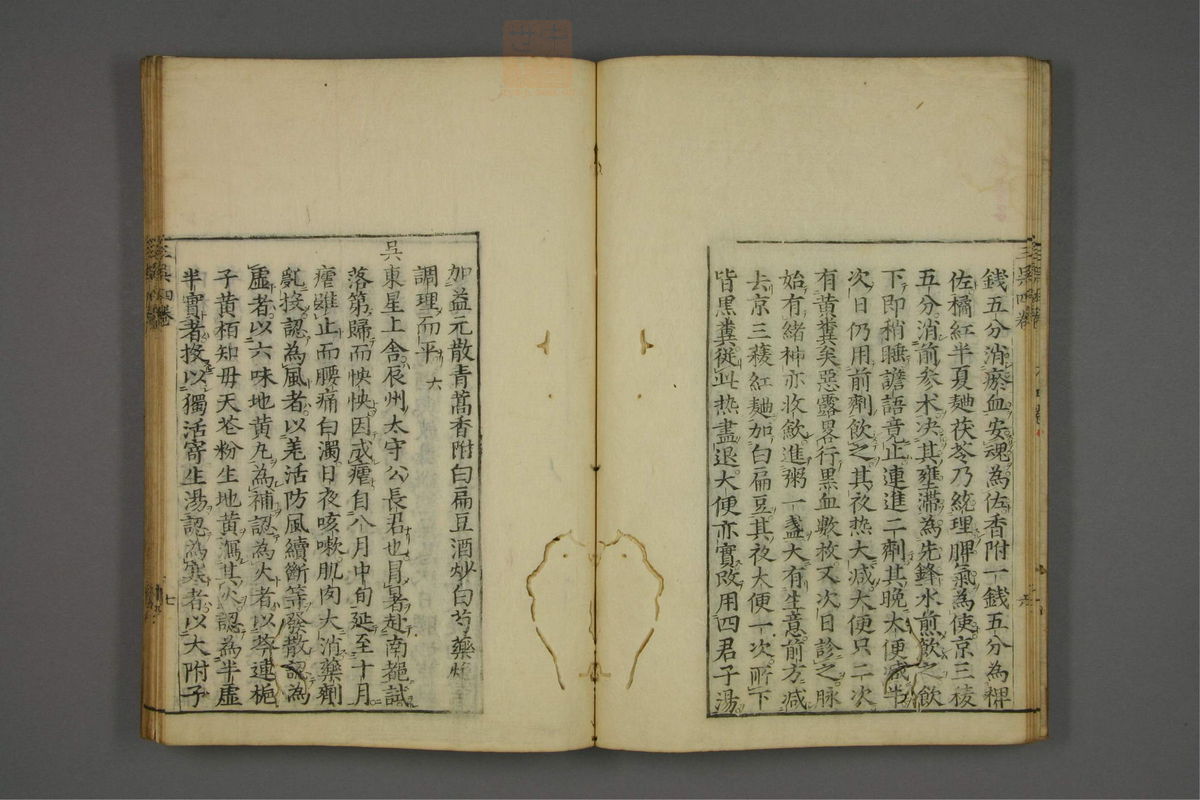 錢五分消瘀血安魂為佐香附一錢五分為裨
佐橘紅半夏麯茯苓乃統理脾氣為使京三稜
五分消前參朮决其壅滯為先鋒水煎飲之飲
下即稍瞧譫語竟止連進二劑其晚大便减半
次日仍用前劑飲之其夜热大减大便只二次
有黄糞矣惡露畧行黒血數枚又次日診之脉
始有緒神亦收歛進粥一盞大有生意前方减
去京三稜紅麯加白扁豆其夜大便一次所下
皆黒糞従此热盡退大便亦實改用四君子湯
三吳四卷
六
加益元散青蒿香附白扁豆酒炒白芍藥
調理而平六
吳東星上舎辰州太守公長君也冒暑赴南都試
落第歸而怏怏因成瘧自八月中旬延至十月
瘧雖止而腰痛白濁日夜咳嗽肌肉大消藥劑
亂投認為風者以羗活防風續斷等發散認為
虚者以六味地黄丸為補認為火者以芩連梔
子黄栢知母天苍粉生地黄瀉其火認為半虚
半實者投以獨活寄生湯認為寒者以大附子
三吳四卷
七